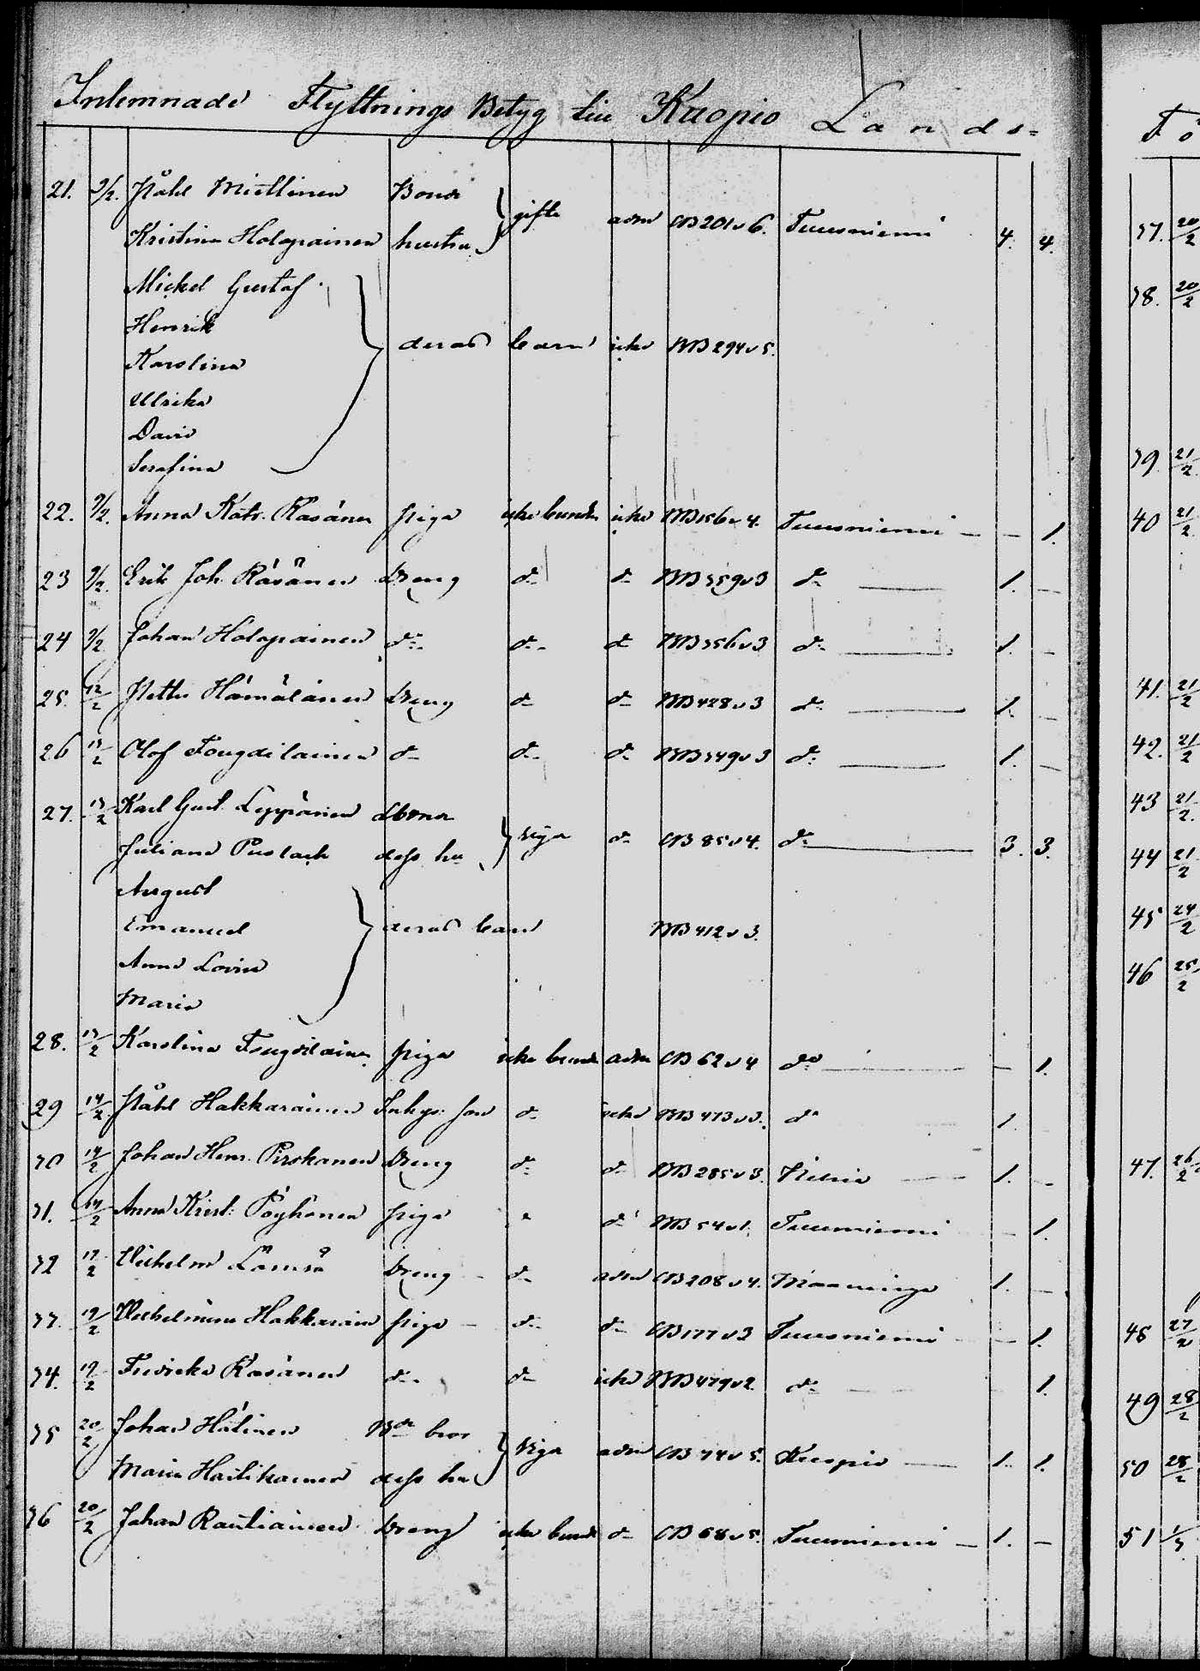 Inlemnade Flyttnings Betyg till Kuopio Lands-
21. 9/2. Påhl Miettinen Bond
Kristina Holopainen hustru } gifte adm CB 201 v 6. Tuusniemi 4. 4.
Mickel Gustaf
Henrik
Karolina } deras barn icke MB 294 v 5.
Ulrika
David
Serafina
22. 9/2. Anna Katr. Räsänen piga icke bunden icke MB 156 v 4. Tuusniemi - - 1.
23 9/2. Erik Joh. Räsänen dreng do do MB 359 v 3 do 1. -
24 9/2 Johan Holopainen do do do MB 356 v 3 do 1. -
25. 12/2 Petter Hämäläinen dreng do do MB 428 v 3 do 1. -
26 13/2 Olof do do do MB 349 v 3 do 1. -
27. 13/2 Karl Gust. Leppänen
Juliana dess hu } viga do CB 85 v 4. do 3. 3.
August
Emanuel } deras barn MB 412 v 3.
Anna Lovisa
Maria
28. 13/2 Karolina piga icke bunden adm CB 62 v 4 do - 1.
29 14/2 Påhl Hakkarainen Inhys. son do icke MB 473 v 3. do 1.
30 14/2 Johan Henr. Pirskanen dreng do do MB 285 v 3. 1. -
31. 14/2 Anna Krist: Pöyhönen piga do MB 54 v 1. Tuusniemi - 1.
32 17/2 Wilhelm Lämsä dreng - do adm CB 208 v 4. Maaninga 1. -
33. 19/2 Wilhelmina Hakkarain piga - do do CB 177 v 3 Tuusniemi - 1.
34. 19/2 Fredrika Räsänen do do icke MB 479 v 2. do 1.
35 20/2 Johan Hälinen
Maria dess hu } viga adm CB 74 v 5. Kuopio 1. 1.
36 20/2 Johan Rautiainen dreng icke bunde do CB 68 v 5. Tuusniemi - 1. -
37. 20/2
38. 20/2
39 21/2
40 21/2
41. 21/2
42. 21/2
43 21/2.
44 21/2
45 24/2
46 25/2
47. 26/2
48 27/2
49 28/2
50 28/2
51 1/3